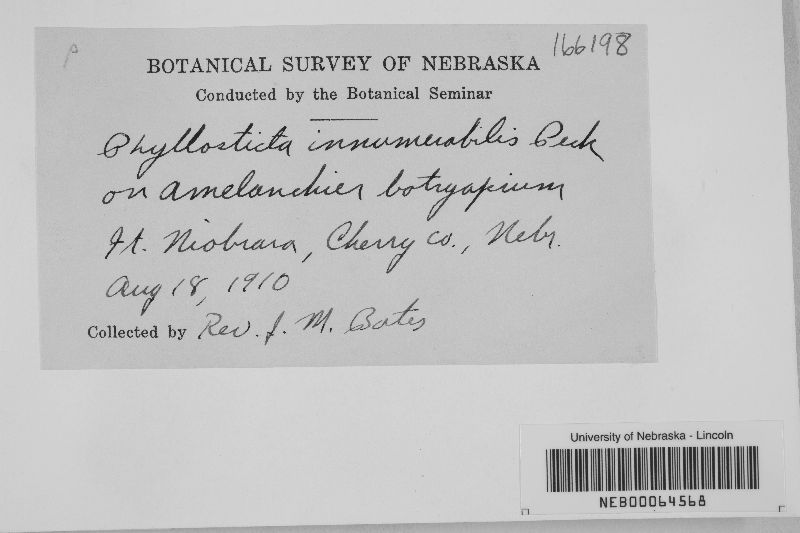 P
166198
BOTANICAL SURVEY OF NEBRASKA
Conducted by the Botanical Seminar
Phyllosticta innumerabilis Peck
on Amelanchier botryapium
Ft. Niobrara, Cherry Co., Nebr.
Aug 18, 1910
Collected by Rev. J. M. Bates
University of Nebraska - Lincoln
NEB00064568